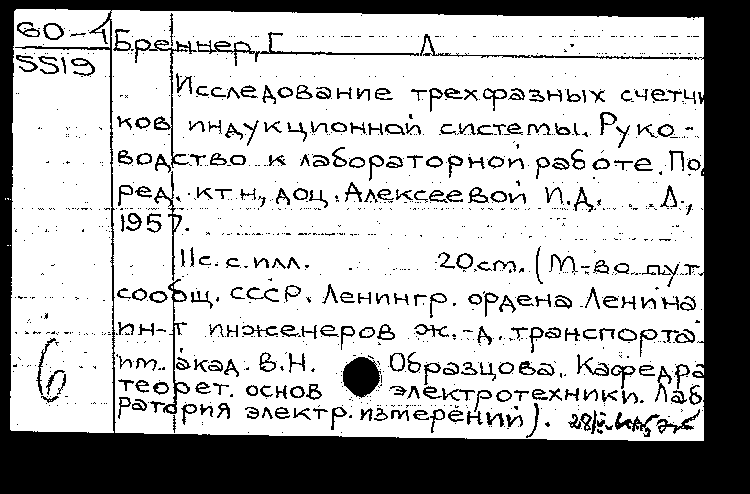 60-4
5519
Бреннер, Г Л
Исследование трехфазных счетчи
ков индукционной системы. Руко-
водство к лабораторной работе. Под
ред. ктн, доц. Алексеевой П.Д. Л.,
1957.
11с. с илл. 20см. (М-во пут.
сообщ. СССР. Ленингр. ордена Ленина
ин-т инженеров ж.-д. транспорта
им. акад. В.Н. Образцова. Кафедра
теорет. основ электротехники. Лаб
ратория электр. измерений).
6